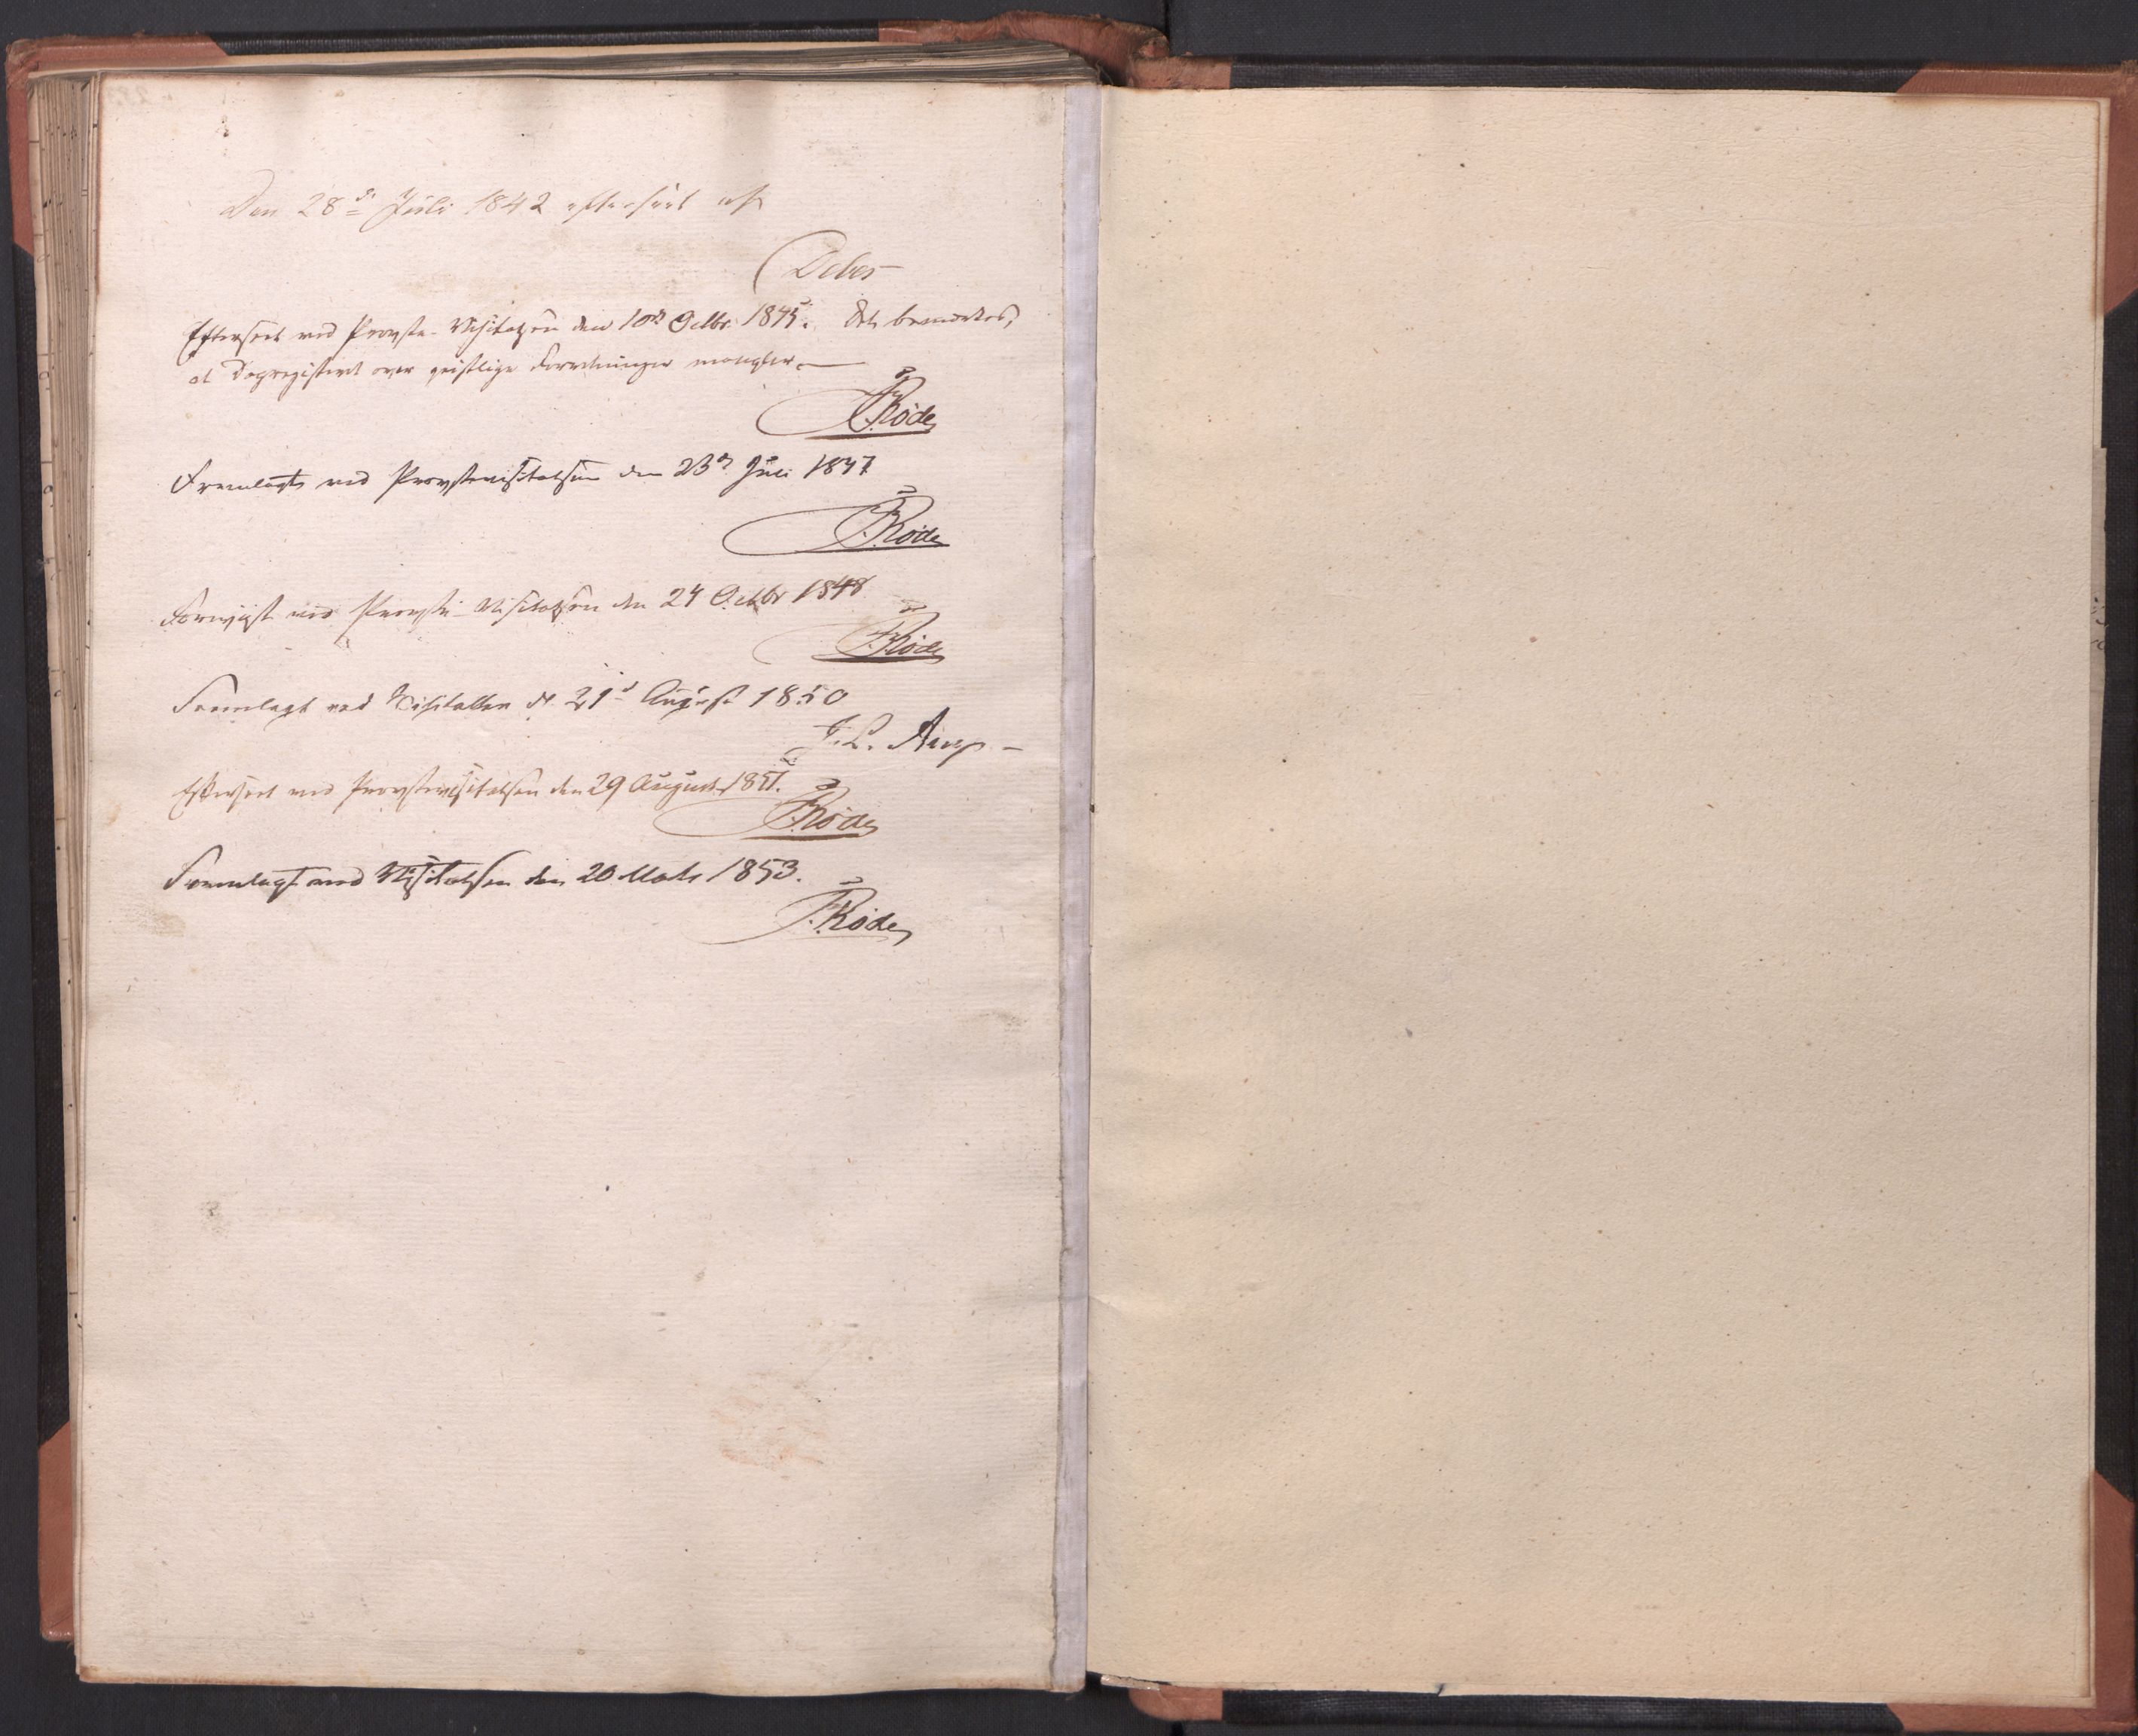 Den 28de Juli 1842 efterseet af
Debes
Efterseet ved Provste-Visitatsen den 10de Octbr 1845. Det bemærkes,
at Dagregisteret over geistlige Forretninger mangler.
F. Rode
Fremlagt ved Provstevisitatsen den 23de Juli 1847
F. Rode
Forevist ved Provste-Visitatsen den 24 Octbr 1848
F. Rode
Fremlagt ved Visitatsen d. 21de August 1850
J. L. Arup
Efterseet ved Provstevisitatsen den 29 August 1851.
F. Rode
Fremlagt ved Visitatsen den 20 1853.
F. Rode